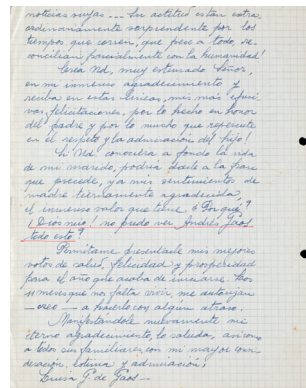 noticias viejas --- Su actitud es tan extra
ordinariamente sorprendente por los
tiempos que corren, que pese a todo, se
concilian parcialmente con la humanidad!
Crea Ud, muy estimado Señor,
en mi inmenso agradecimiento y
reciba en estas líneas, mis más efusi
vas felicitaciones, por lo hecho en honor
del padre y por lo mucho que represente
en el respeto y la admiración del hijo!
Si Ud. conociera a fondo la vida
de mi marido, podría darle a la frase
que precede, y a mis sentimientos de
madre tiernamente agradecida,
el inmenso valor que tiene ¿Por qué?
¡Dios mío! no pudo ver Andrés Gaos
todo esto?
Permítame presentarle mis mejores
votos de salud, felicidad y prosperidad
para el año que acaba de iniciarse. Los
11 meses que nos falta vivir, me autorizan
— creo — a hacerlo con algún atraso.
Manifestándole nuevamente mi
eterno agradecimiento, lo saluda, así como
a todos sus familiares con mi mayor consi
deración, estima y admiración;
Luisa G. de Gaos —